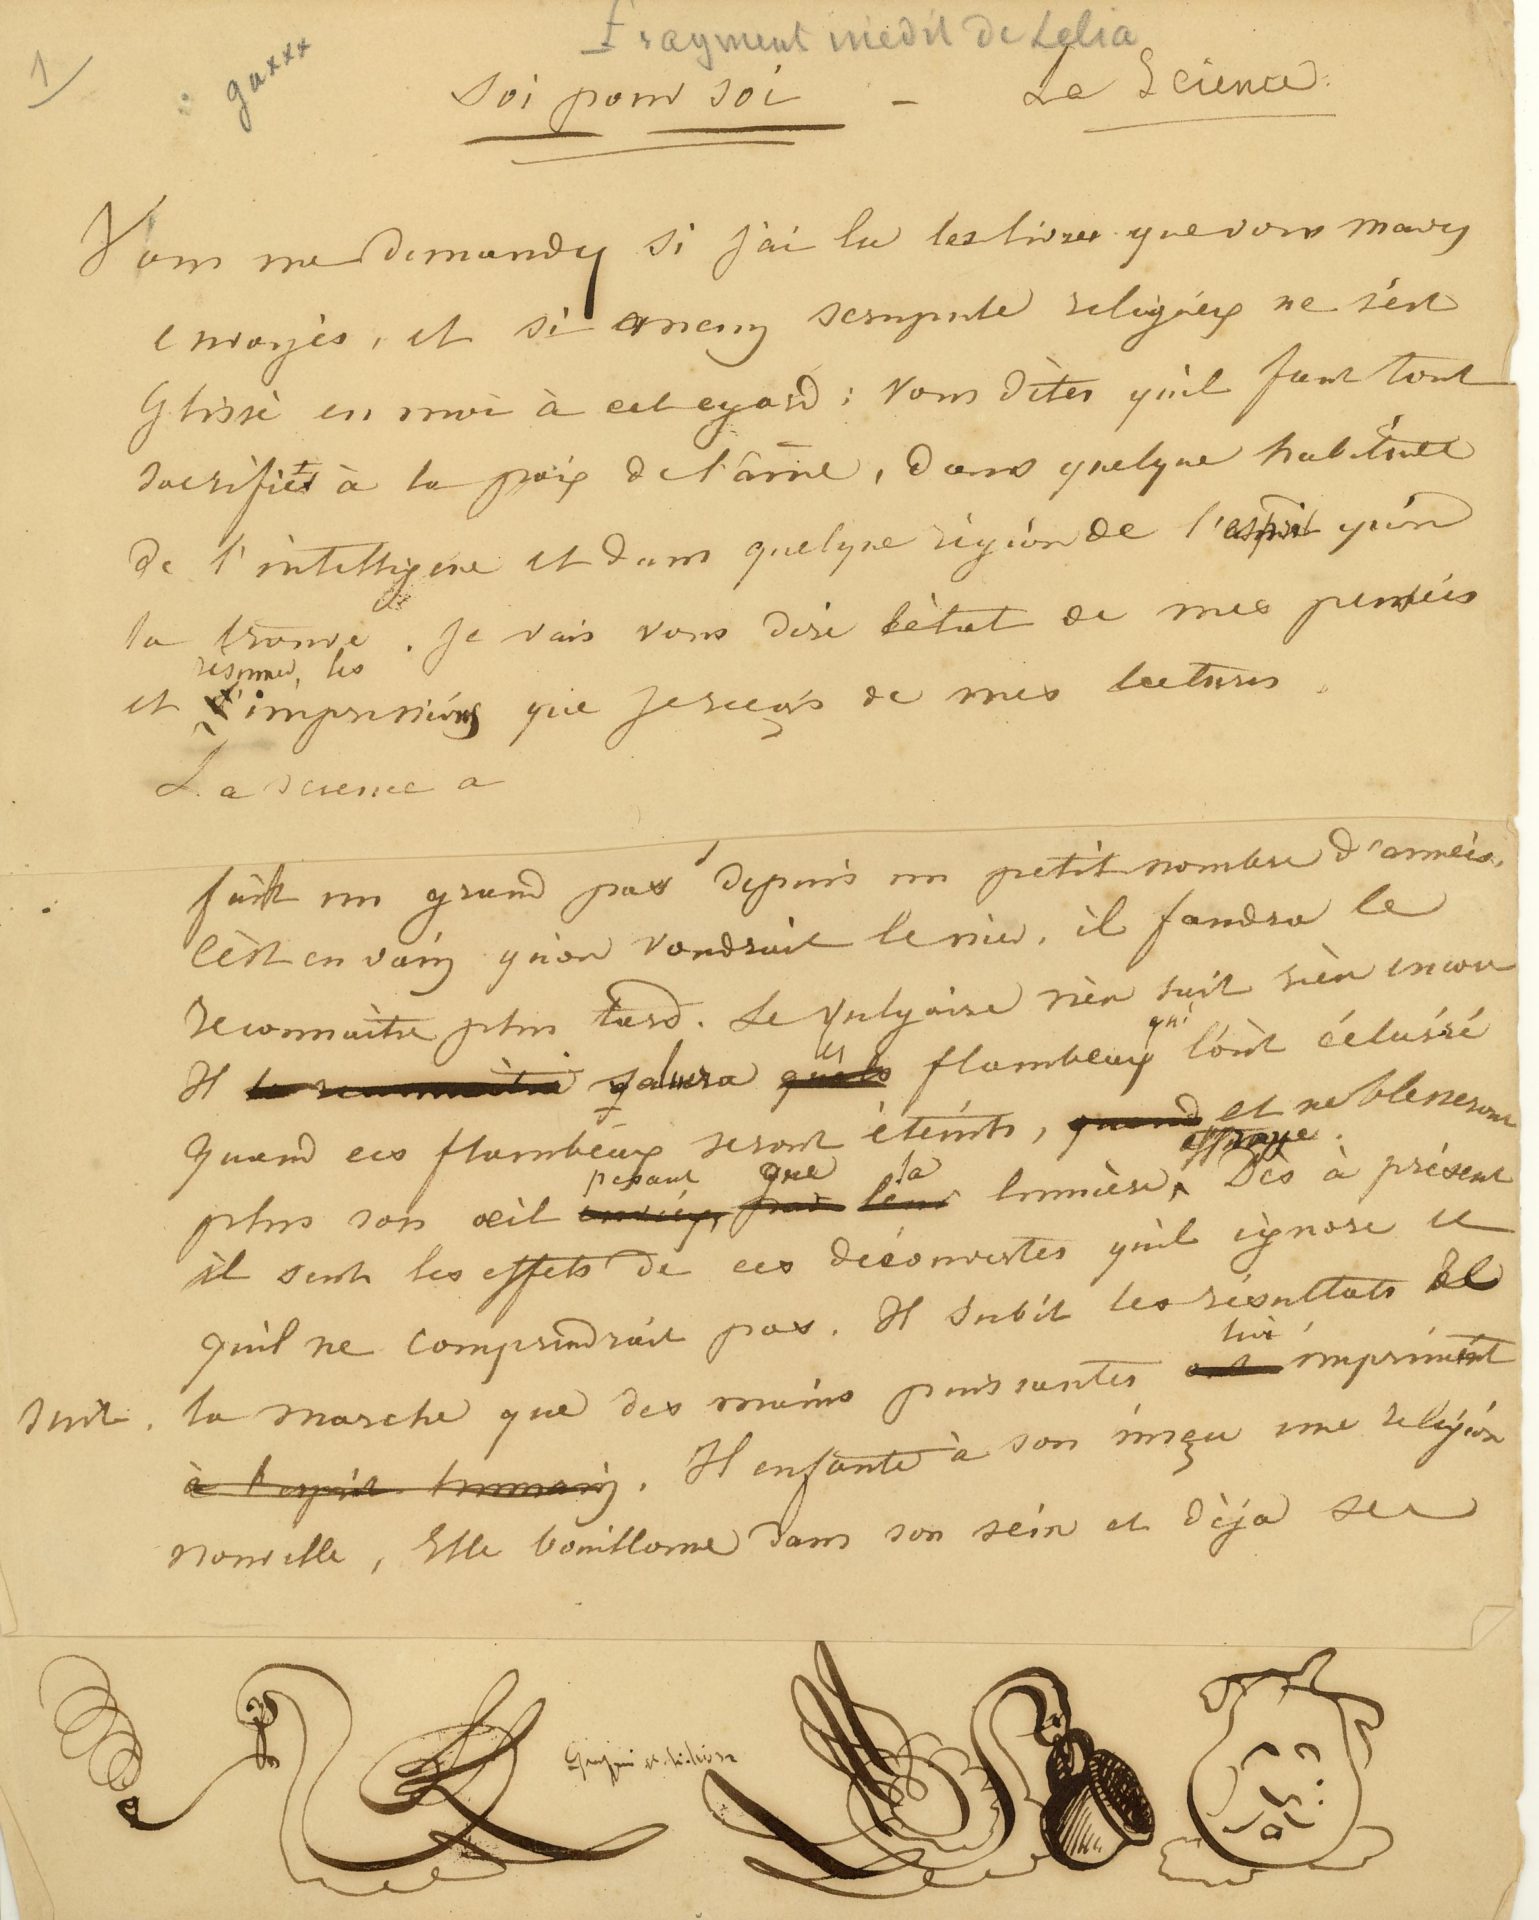 1
gaxxx
Fragment inédit de Lelia
Soi pour soi — La Science.
Vous me demandez si j'ai lu les livres que vous m'avez
envoyés, et si aucun scrupule religieux ne s'est
Glissé en moi à cet egard : Vous dites qu'il faut tout
sacrifier à la paix de l'âme, dans quelque habitude
de l'intelligence et dans quelque région de l'esprit qu'on
la trouve. Je vais vous dire l'état de mes pensées
résumer, les
et l'impressions que je reçois de mes lectures.
La science a
fait un grand pas depuis un petit nombre d'années.
C'est en vain qu'on voudrait le nier, il faudra le
reconnaître plus tard. Le vulgaire n'en sait rien encore
les qui
Il le reconnaitra saluera quels flambeaux l'ont éclairé
Quand ces flambeaux seront éteints, quand et ne blesseront
pesant que la affrayé.
plus son œil par leur lumière. Dès à présent
il sent les effets de ces découvertes qu'il ignore et
qu'il ne comprendrait pas. Il subit les résultats et
lui
suit. la marche que des mains puissantes ont impriment
à l'esprit humain. Il enfante à son insçu une religion
nouvelle, Elle bouillonne dans son sein et dèja ses